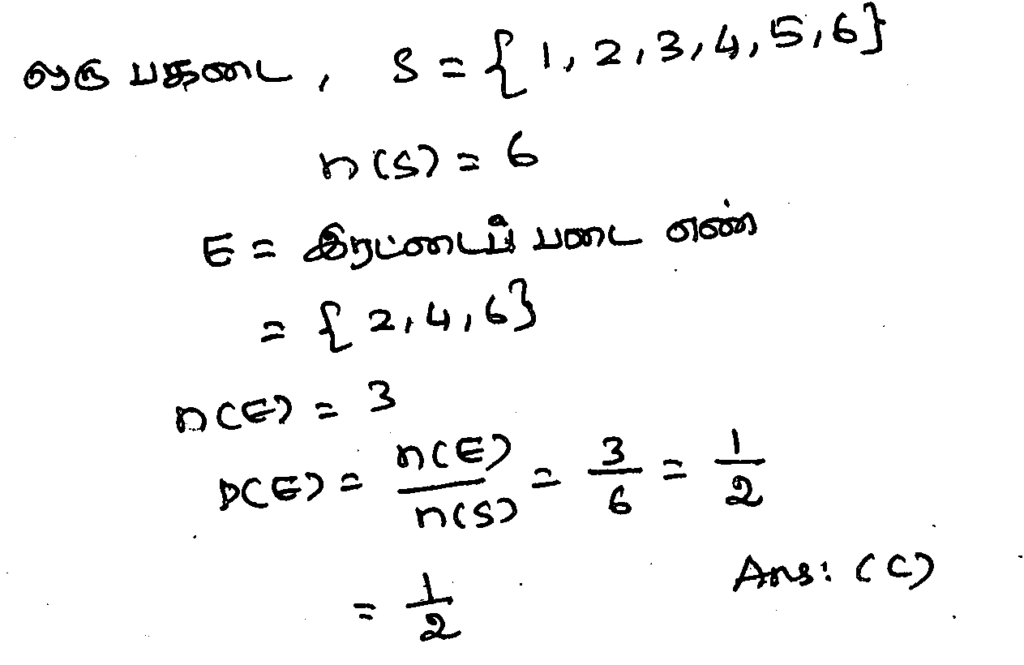 ஒரு பகடை, S = { 1, 2, 3, 4, 5, 6}
n(S) = 6
E = இரட்டைப் படை எண்
= { 2, 4, 6}
n(E) = 3
P(E) = n(E)/n(S) = 3/6 = 1/2
= 1/2
Ans: (C)